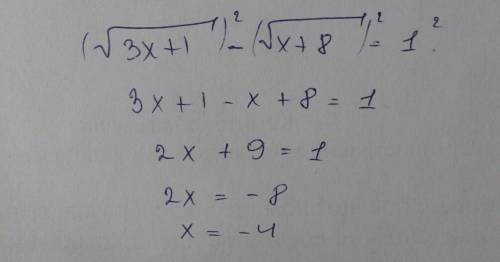 (√3x+1)² - (√x+8)² = 1².
3x+1 - x + 8 = 1
2x + 9 = 1
2x = -8
x = -4